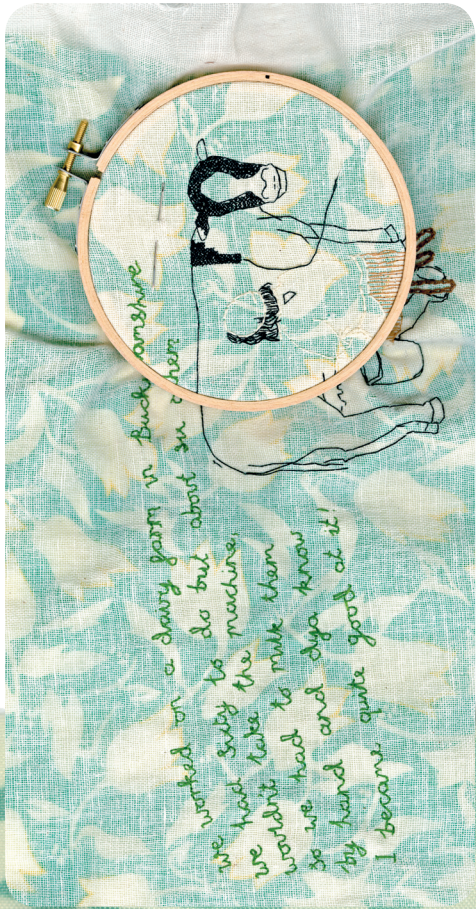 we worked on a dairy farm in Buck amshire
we had sixty to do but about them
wouldn't take the machine,
so we had to milk them
by hand and dya know
I became quite good at it!